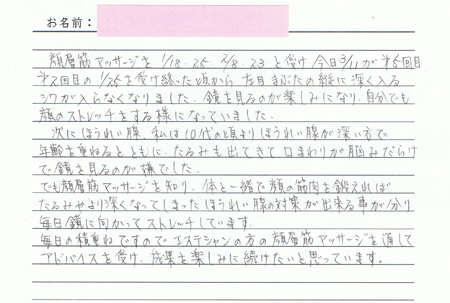 お名前：
顔層筋マッサージを 1/18. 25 2/8. 23 と受け 今日3/11が第5回目
第2回目の1/25を受け終った頃から 左目まぶたの縦に深く入る
シワが入らなくなりました。鏡を見るのが楽しみになり、自分でも
顔のストレッチをする様になっていました。
次にほうれい腺。私は10代の頃よりほうれい腺が深い方で
年齢を重ねるとともに、たるみも出てきて口まわりが悩みだらけ
で鏡を見るのが嫌でした。
でも顔層筋マッサージを知り、体と一緒で顔の筋肉を鍛えれば
たるみやより深くなってしまったほうれい腺の対策が出来る事が分り
毎日鏡に向かってストレッチしています。
毎日の積重ねですのでエステシャンの方の顔層筋マッサージを通して
アドバイスを受け、成果を楽しみに続けたいと思っています。